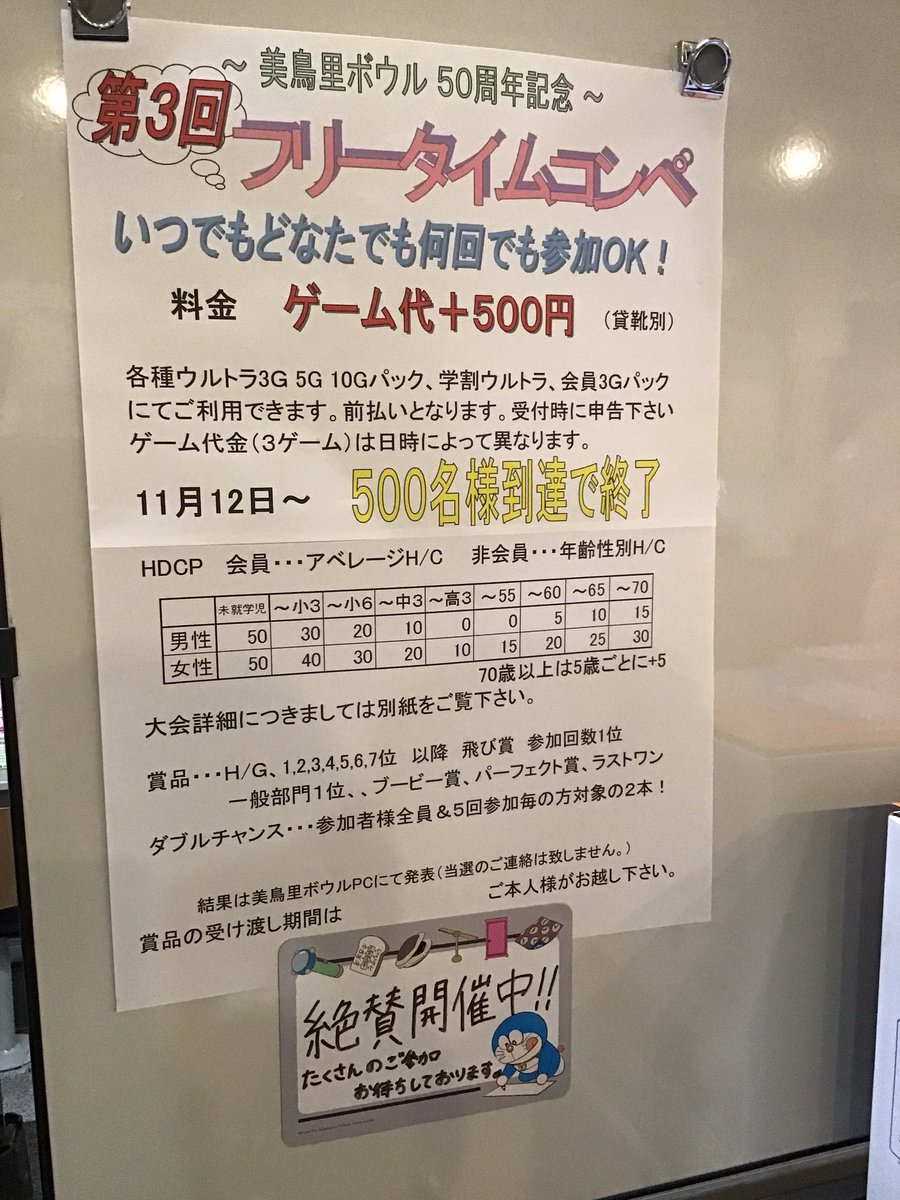 ～ 美鳥里ボウル 50周年記念 ～
第3回
フリータイムコンペ
いつでもどなたでも何回でも参加OK！
料金 ゲーム代＋500円 （貸靴別）
各種ウルトラ3G 5G 10Gパック、学割ウルトラ、会員3Gパック
にてご利用できます。前払いとなります。受付時に申告下さい
ゲーム代金（3ゲーム）は日時によって異なります。
11月12日～ 500名様到達で終了
HDCP 会員・・・アベレージH/C 非会員・・・年齢性別H/C
未就学児 ～小3 ～小6 ～中3 ～高3 ～55 ～60 ～65 ～70
男性 50 30 20 10 0 0 5 10 15
女性 50 40 30 20 10 15 20 25 30
70歳以上は5歳ごとに+5
大会詳細につきましては別紙をご覧下さい。
賞品・・・H/G、1,2,3,4,5,6,7位 以降 飛び賞 参加回数1位
一般部門1位、、ブービー賞、パーフェクト賞、ラストワン
ダブルチャンス・・・参加者様全員＆5回参加毎の方対象の2本！
結果は美鳥里ボウルPCにて発表（当選のご連絡は致しません。）
賞品の受け渡し期間は ご本人様がお越し下さい。
絶賛開催中!!
たくさんのご参加
お待ちしております。